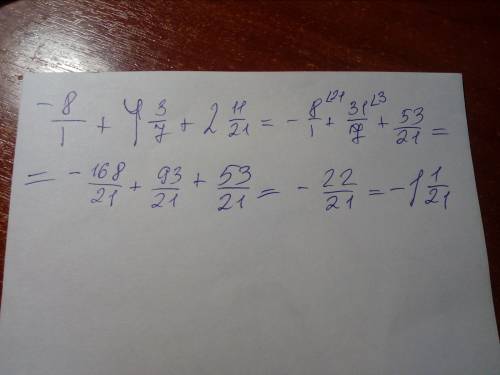 -8/1 + 4 3/7 + 2 11/21 = - 8/1 ∟21 + 31/7 ∟3 + 53/21 =
= - 168/21 + 93/21 + 53/21 = - 22/21 = -1 1/21